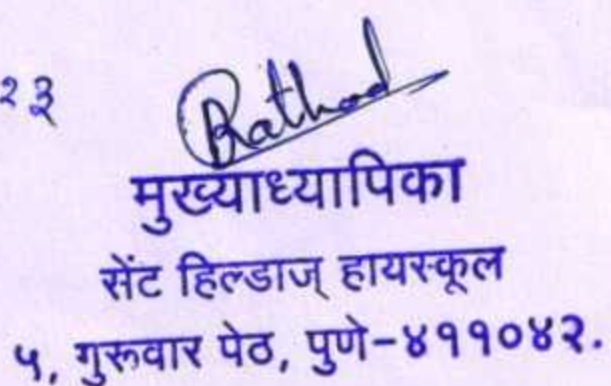 २३
Rathod
मुख्याध्यापिका
सेंट हिल्डाज् हायस्कूल
५, गुरूवार पेठ, पुणे-४११०४२.